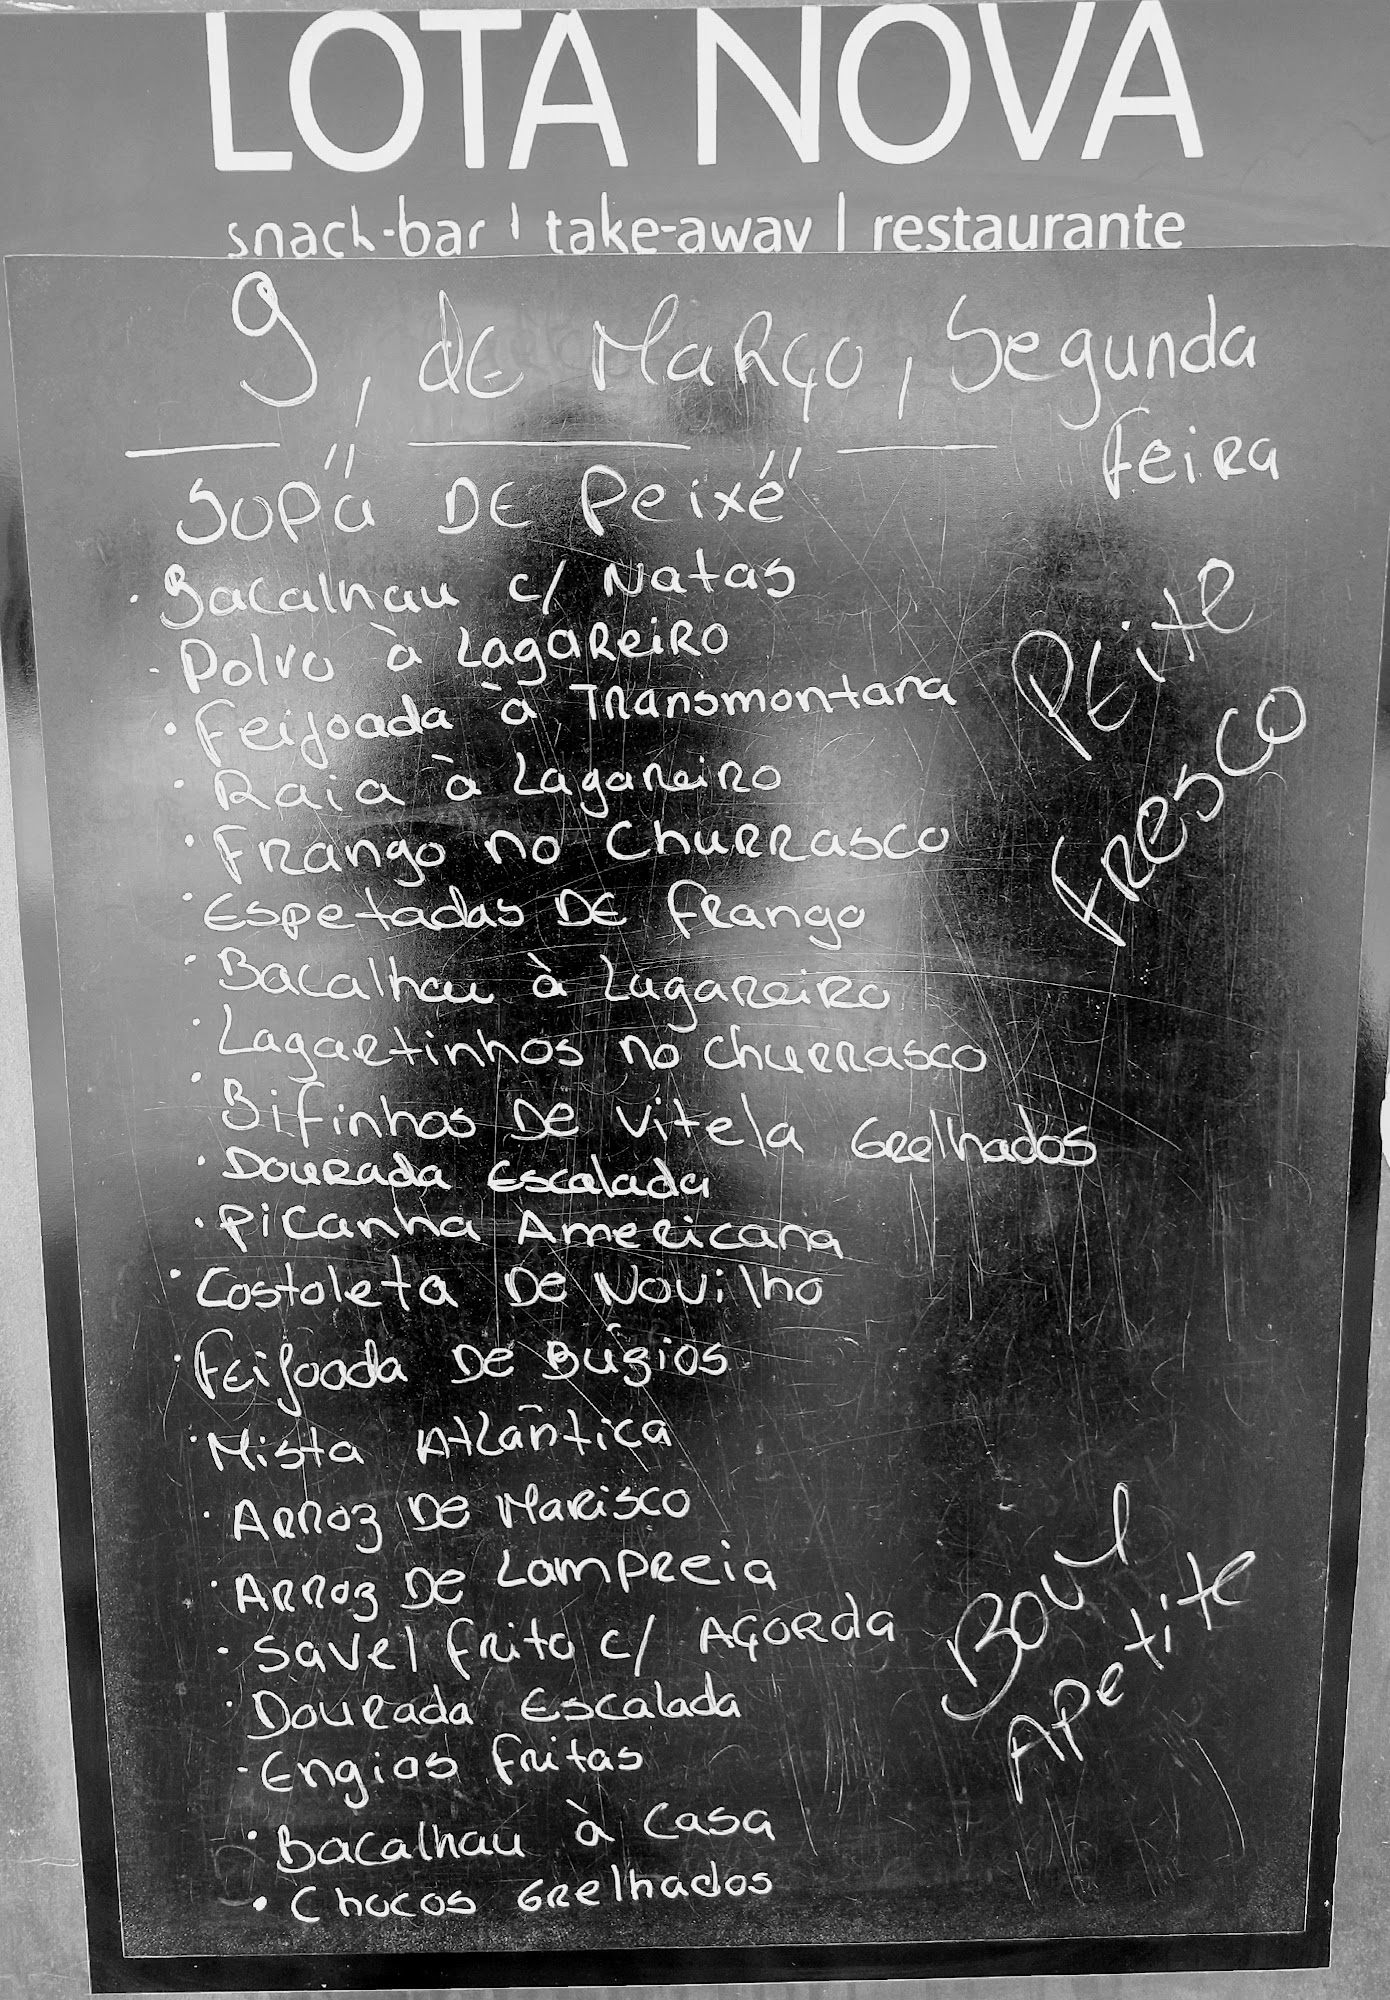 LOTA NOVA
snack-bar | take-away | restaurante
9, de Março, Segunda
Feira
"Sopa de Peixe"
· Bacalhau c/ Natas
- Polvo à Lagareiro
· Feijoada à Transmontana
· Raia à Lagareiro
· Frango no Churrasco
· Espetadas de Frango
· Bacalhau à Lagareiro
· Lagartinhos no Churrasco
· Bifinhos de Vitela Grelhados
· Dourada Escalada
· Picanha Americana
· Costoleta de Novilho
· Feijoada de Búgios
· Mista Atlântica
· Arroz de Marisco
· Arroz de Lampreia
· Savel Frito c/ Açorda
· Dourada Escalada
- Engios Fritas
· Bacalhau à Casa
· Chocos Grelhados
Peite
Fresco
Apetite